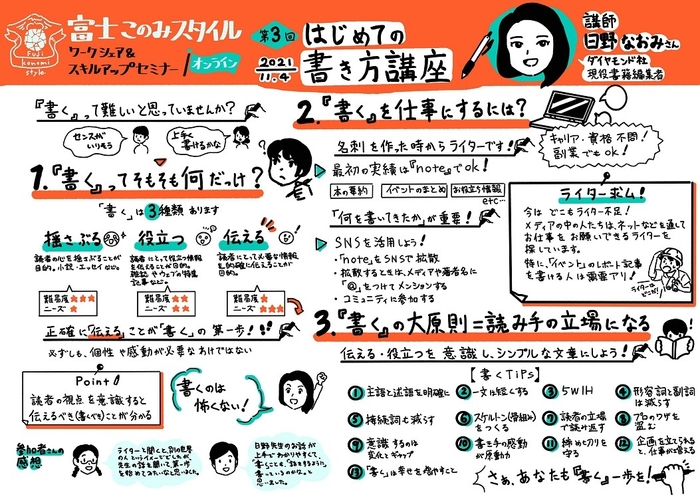 富士このみスタイル
ワークシェア&
スキルアップセミナー
オンライン
Fuji
konomi
style
第3回
2021
11.4
はじめての
書き方講座
講師
日野なおみさん
ダイヤモンド社
現役書籍編集者
『書く』って難しいと思っていませんか?
センスが
いりそう
上手く
書けるかな
1.『書く』ってそもそも何だっけ?
「書く」は3種類あります
揺さぶる
読者の心を揺さぶることが
目的。小説・エッセイなど。
役立つ
読者にとって役立つ情報
を伝えることが目的。
雑誌やウェブの特集
記事など。
伝える
読者にとって必要な情報
を的確に伝えることが
目的。
難易度
ニーズ
難易度
ニーズ
難易度
ニーズ
正確に「伝える」ことが「書く」の第一歩!!
必ずしも、個性や感動が必要なわけではない
Point!
読者の視点を意識すると
伝えるべき(書くべき)ことが分かる
書くのは
怖くない!
参加者さんの
感想
ライターと聞くと、別の世界
の人というイメージでしたが、
先生の話を聞いて、第一歩
を始めてみたいなと思いました。
日野先生のお話が
上手でわかりやすくて、
2.『書く』を仕事にするには?
名刺を作った時からライターです!
最初の実績は『note』でok!
本の要約
イベントのまとめ
お役立ち情報
etc…
「何を書いてきたか」が重要!
SNSを活用しよう!
・「note」をSNSで拡散
・拡散するときは、メディアや著者名に
「@」をつけてメンションする
・コミュニティに参加する
キャリア・資格不問!
副業でもok!
ライター求ム!
今はどこもライター不足!
メディアの中の人たちは、ネットなどを通して
お仕事をお願いできるライターを
探しています。
特に、「イベント」のレポート記事
を書ける人は需要アリ!
ライターは
どこだ!
3.『書く』の大原則=読み手の立場になる
伝える・役立つを意識し、シンプルな文章にしよう!
【書くTIPS】
①主語と述語を明確に
②一文は短くする
③5W1H
④形容詞と副詞
は減らす
⑤接続詞も減らす
⑥スケルトン(骨組み)
をつくる
⑦読者の立場
で読み返す
⑧プロのワザを
盗む
⑨意識するのは
変化とギャップ
⑩書き手の感動
が原動力
⑪締め切りを
守る
⑫企画を立てられる
と、仕事が増える
⑬「書く」は幸せを増やすこと
さぁ、あなたも『書く』一歩を!